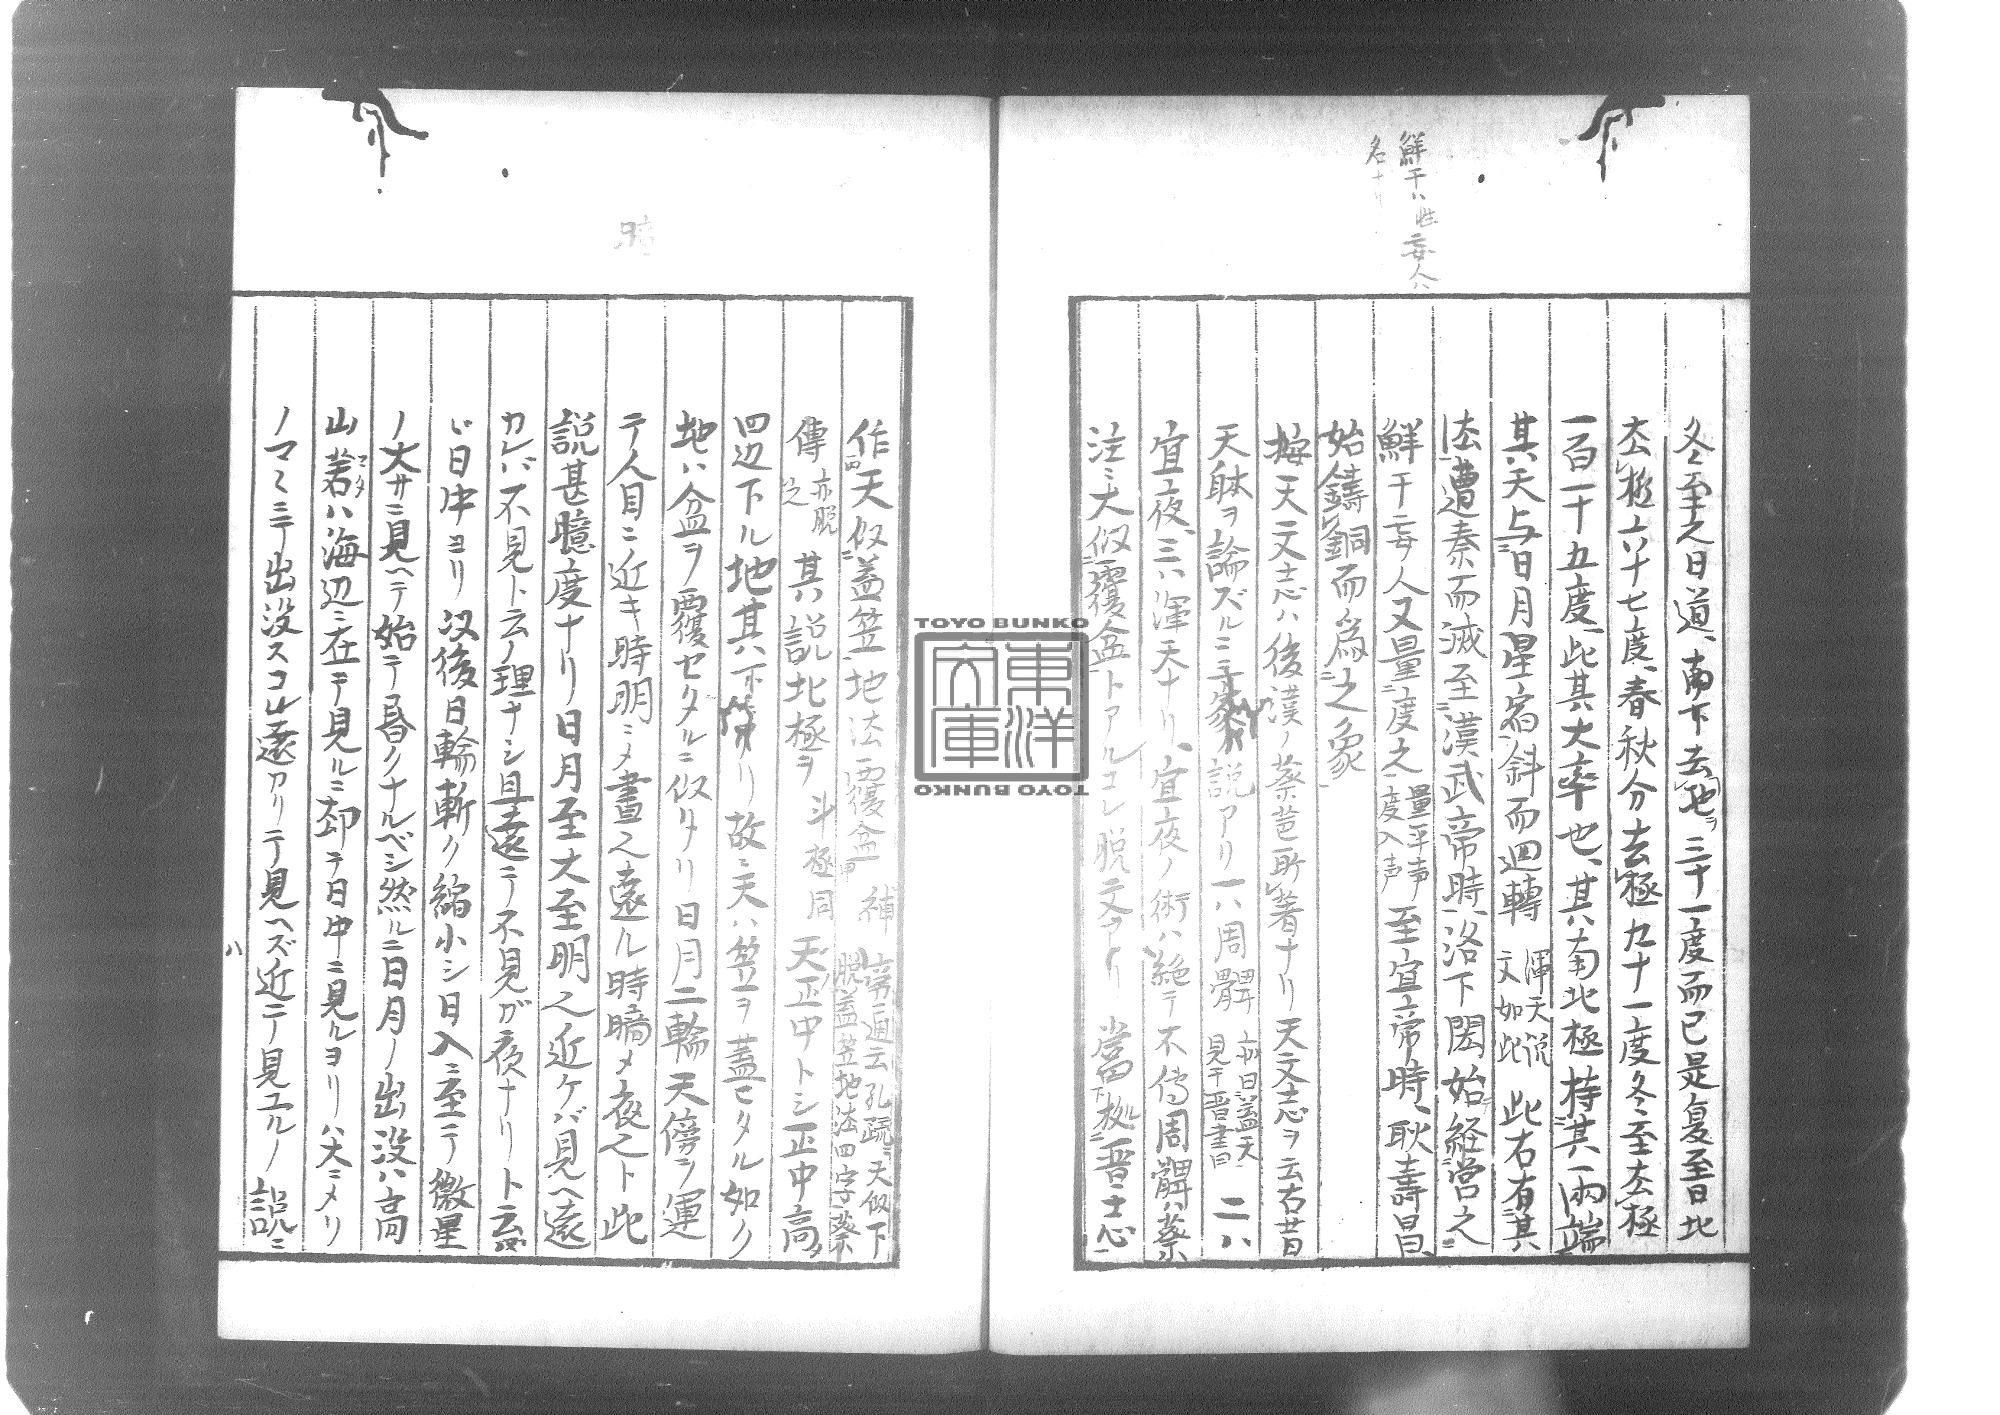 鮮于ハ姓妄人ハ
名ナリ
冬至之日道、南下去地ヲ三十一度而已是夏至日北
去極六十七度、春秋分去極九十一度冬至去極
一百一十五度、此其大率也、其ハ南北極持其一兩端
其天与日月星宿斜而迴轉 渾天説文如此 此右有其
法遭秦而滅至漢武帝時、洛下閎始経営之
鮮于妄人又量度之 量平声度入声 至宣帝時、耿壽昌
始鑄銅而為之象
按天文志ハ後漢ノ蔡邕所著ナリ天文志ヲ云右昔
天躰ヲ論ズルニ三家ノ説アリ一ハ周髀 亦曰蓋天見于晋書曰 二ハ
宣夜、三ハ渾天ナリ、宣夜ノ術ハ絶テ不傳周髀ハ蔡
注ニ大似覆盆トアルコレ脱文アリ當拠晋士心
作天似蓋笠、地法覆盆 補 旁通云孔疏ニ天似下脱蓋笠地法四字蔡
傳亦脱之 其ハ説北極ヲ 斗極同 天正中トシ正中高ク
四辺下ル地其ハ下ナリ故ニ天ハ笠ヲ蓋セタル如ク
地ハ盆ヲ覆セタルニ似タリ日月二輪天傍ヲ運
テ人目ニ近キ時明ニメ晝ヘ遠ル時暗メ夜ヘト此
説甚臆度ナリ日月至大至明ヘ近ケバ見ヘ遠
カレバ不見ト云ノ理ナシ且遠テ不見ガ夜ナリト云
ハ日中ヨリ以後日輪斬ク縮小シ日入ニ至テ微星
ノ大サニ見ヘテ始テ昏クナルベシ然ルニ日月ノ出没ハ高
山若ハ海辺ニ在テ見ルニ却テ日中ニ見ルヨリハ大ニメリ
ノマミテ出没スコレ遠カリテ見ヘズ近ニテ見ユルノ説ニ
八
TOYO BUNKO
東洋文庫
TOYO BUNKO